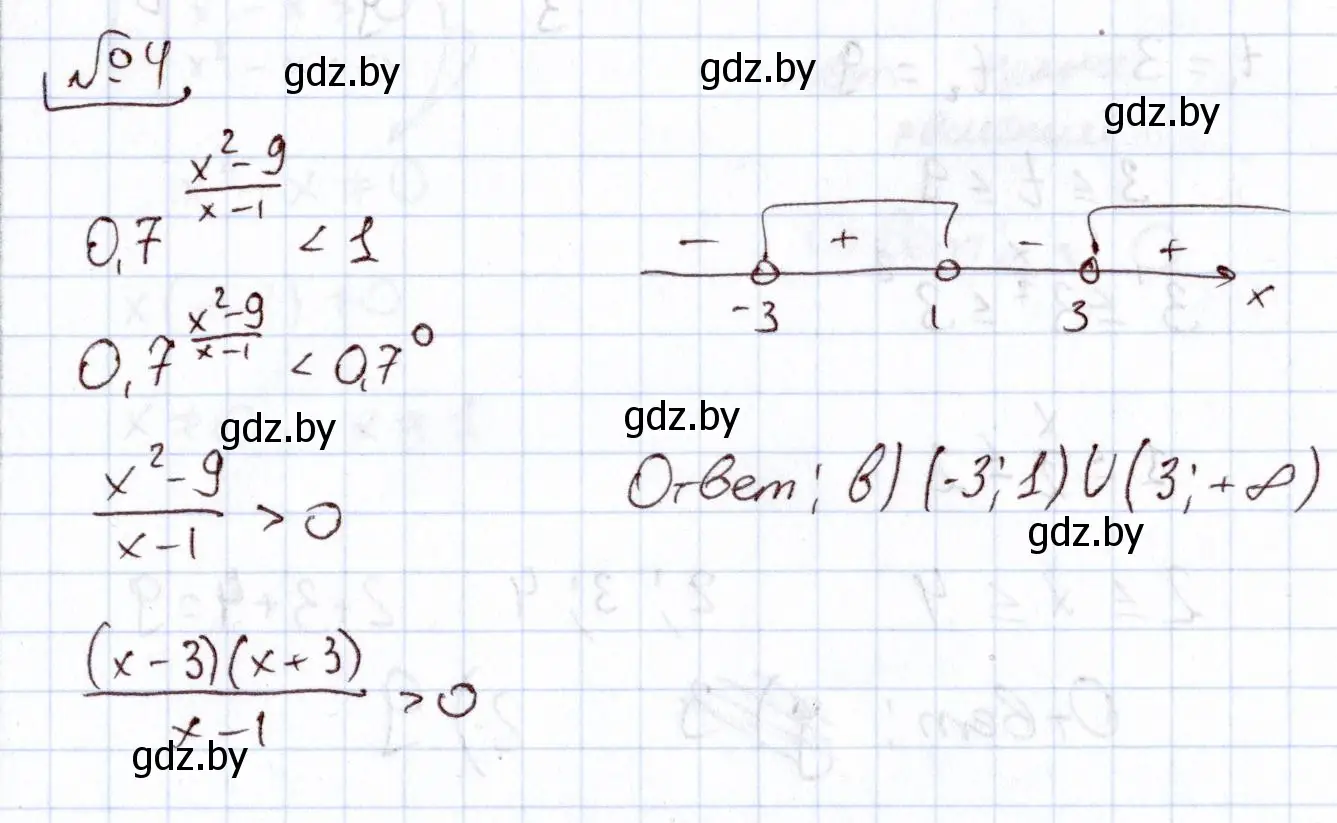 №4
gdz.by
gdz.by
gdz.by
0,7^((x²-9)/(x-1)) < 1
0,7^((x²-9)/(x-1)) < 0,7^0
gdz.by
(x²-9)/(x-1) > 0
((x-3)(x+3))/(x-1) > 0
gdz.by
- + - +
-3 1 3 x
gdz.by
Ответ: в) (-3; 1) ∪ (3; +∞)
gdz.by